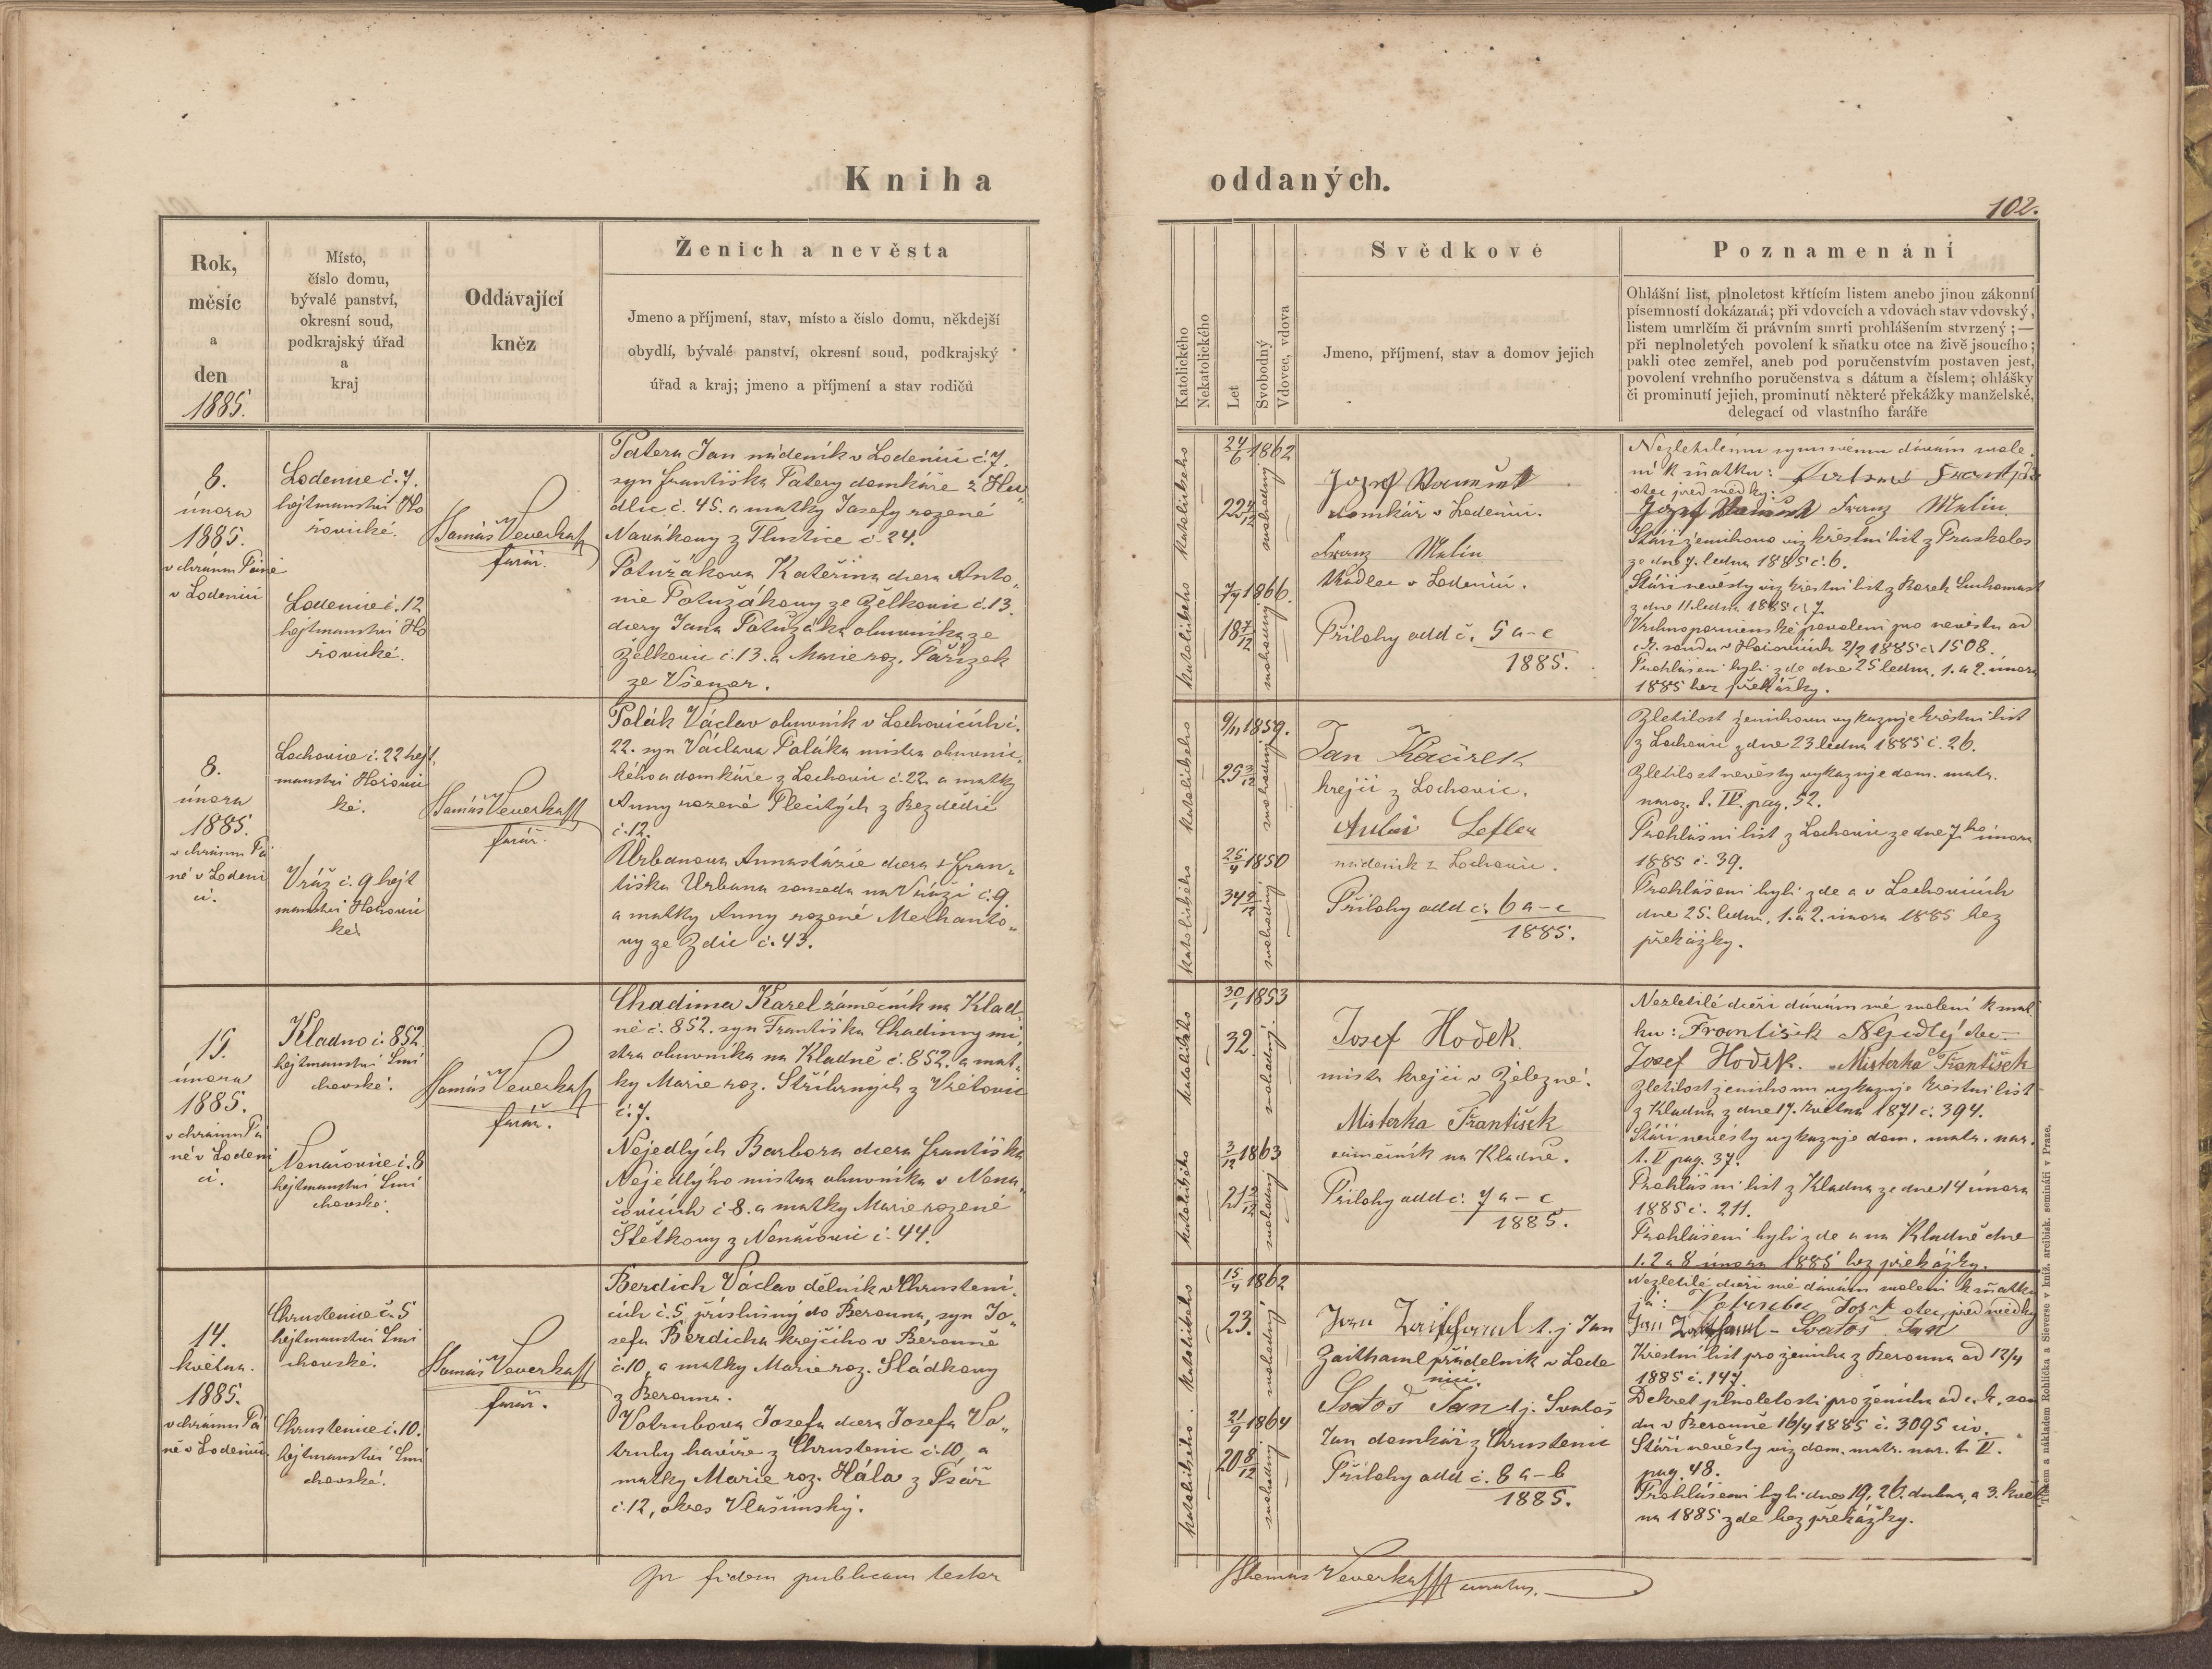 Kniha
oddaných.
102.
Rok,
měsíc
a
den
1885.
Místo,
číslo domu,
bývalé panství,
okresní soud,
podkrajský úřad
a
kraj
Oddávající
kněz
Ženich a nevěsta
Jmeno a příjmení, stav, místo a číslo domu, někdejší
obydlí, bývalé panství, okresní soud, podkrajský
úřad a kraj; jmeno a příjmení a stav rodičů
Katolického
Nekatolického
Let
Svobodný
Vdovec, vdova
Svědkové
Jmeno, příjmení, stav a domov jejich
Poznamenání
Ohlášní list, plnoletost křtícím listem anebo jinou zákonní
písemností dokázaná; při vdovcích a vdovách stav vdovský,
listem umrlčím či právním smrti prohlášením stvrzený; —
při neplnoletých povolení k sňatku otce na živě jsoucího;
pakli otec zemřel, aneb pod poručenstvím postaven jest,
povolení vrchního poručenstva s dátum a číslem; ohlášky
či prominutí jejich, prominutí některé překážky manželské,
delegací od vlastního faráře
6.
února
1885.
v chrámu Páně
v Lodenici
Lodenice č. 7.
hejtmanství Ho
řovické.
Lodenice č. 12
hejtmanství Ho
řovické.
Tomáš Veverka
farář.
Patera Jan nádeník v Lodenici č. 7.
syn Františka Patery domkáře z Hu„
dlic č. 45. a matky Josefy rozené
Novákovy z Tlustice č. 24.
Potužákova Kateřina dcera Anto„
nie Potužákovy ze Želkovic č. 13.
dcery Jana Potužáka obuvníka ze
Želkovic č. 13. a Marie roz. Pařízek
ze Všenor.
katolického
24/6 1862
22 7/12
svobodný
katolického
7/7 1866.
18 7/12
svobodný
Josef
domkář v Lodenici.
Franz Malin
v Lodenici.
Přílohy add č. 5 a-c
1885.
Nezletilému synu svému dávám svole„
ní k sňatku:
otec před svědky:
Josef Franz Malin
Stáří ženichovo viz křestní list z Praskoles
ze dne 7. ledna 1885 č. 6.
Stáří nevěsty viz křestní list z Borek Suchomast
z dne 11. ledna 1885 č. 7.
Vrchnoporučenské povolení pro nevěstu od
c. k. soudu v Hořovicích 2/2 1885 č. 1508.
Prohlášení byli zde dne 25 ledna, 1. a 2. února
1885 bez překážky.
8.
února
1885.
v chrámu Pá
ně v Lodeni
ci.
Lochovice č. 22 hejt„
manství Hořovic
ké.
Vráž č. 9 hejt
manství Hořovic
ké.
Tomáš Veverka
farář.
Polák Václav obuvník v Lochovicích č.
22. syn Václava Poláka mistra obuvnic„
kého a domkáře z Lochovic č. 22 a matky
Anny rozené Plecitých z Bezdědic
č. 12.
Urbanova Annastázie dcera † Fran„
tiška Urbana souseda na Vráži č. 9.
a matky Anny rozené Melhanto„
vy ze Zdic č. 43.
katolického
9/11 1859.
25 3/12
svobodný
katolického
25/4 1850
34 9/12
svobodný
Jan Kačírek
krejčí z Lochovic.
Lefler
nádeník z Lochovic.
Přílohy add č. 6 a-c
1885.
Zletilost ženichovu vykazuje křestní list
z Lochovic z dne 23 ledna 1885 č. 26.
Zletilost nevěsty vykazuje dom. matr.
naroz. t. IV. pag. 52.
Prohlášní list z Lochovic ze dne 7ho února
1885 č. 39.
Prohlášeni byli zde a v Lochovicích
dne 25. ledna, 1. a 2. února 1885 bez
překážky.
15.
února
1885.
v chrámu Pá
ně v Lodeni
ci.
Kladno č. 852.
hejtmanství Smí
chovské.
Nenačovice č. 8
hejtmanství Smí
chovské.
Tomáš Veverka
farář.
Chadima Karel zámečník na Klad„
ně č. 852. syn Františka Chadimy mi„
stra obuvníka na Kladně č. 852. a mat„
ky Marie roz. Stříbrných z Vrétovic
č. 7.
Nejedlých Barbora dcera Františka
Nejedlýho mistra obuvníka v Nena„
čovicích č 8. a matky Marie rozené
Štětkovy z Nenačovic č. 44.
katolického
30/1 1853
32.
svobodný.
katolického
3/12 1863
21 2/12
svobodný
Josef Hodek.
mistr krejčí v Železné.
Misterka František
zámečník na Kladně.
Přílohy add č. 7 a-c
1885.
Nezletilé dceři dávám své svolení k sňat„
ku: František Nejedlý otec
Josef Hodek. Misterka František
Zletilost ženichovu vykazuje křestní list
z Kladna z dne 17. května 1871 č. 394.
Stáří nevěsty vykazuje dom. matr. nar.
t. V pag. 37.
Prohlášní list z Kladna ze dne 14 února
1885 č. 211.
Prohlášeni byli zde a na Kladně dne
1. 2 a 8 února 1885 bez překážky.
14.
května.
1885.
v chrámu Pá
ně v Lodenici.
Chrustenice č. 5
hejtmanství Smí
chovské.
Chrustenice č. 10.
hejtmanství Smí
chovské.
Tomáš Veverka
farář.
Berdich Václav dělník v Chrusteni„
cích č. 5. příslušný do Berouna, syn Jo„
sefa Berdicha krejčího v Berouně
č. 10, a matky Marie roz. Sládkovy
z Berouna.
Votrubova Josefa dcera Josefa Vo„
truby havíře z Chrustenic č. 10, a
matky Marie roz. Hála z Psář
č. 12, okres Vlašimský.
katolického
15/4 1862
23.
svobodný
katolického
21/9 1864
20 8/12
svobodný
Jan Zaithaml t. j Jan
Zaithaml přádelník v Lode
nici.
Svatoš Jan t. j. Svatoš
Jan domkář z Chrustenic
Přílohy add č. 8 a-b
1885.
Nezletilé dceři své dávám svolení k sňatku
Votruba Josef otec, před svědky
Jan Zaithaml - Svatoš Jan
Křestní list pro ženicha z Berouna od 12/4
1885 č. 147
Dekret plnoletosti pro ženicha od c. k. sou
du v Berouně 16/4 1885 č. 3095 civ.
Stáří nevěsty viz dom. matr. nar. t. V.
pag. 48.
Prohlášeni byli dnes 19, 26. dubna, a 3. květ
na 1885 zde bez překážky.
In fidem publicam testor
Thomas Veverka curatus.
Tiskem a nákladem Rohlíčka a Sieverse v kníž. arcibisk. semináři v Praze.